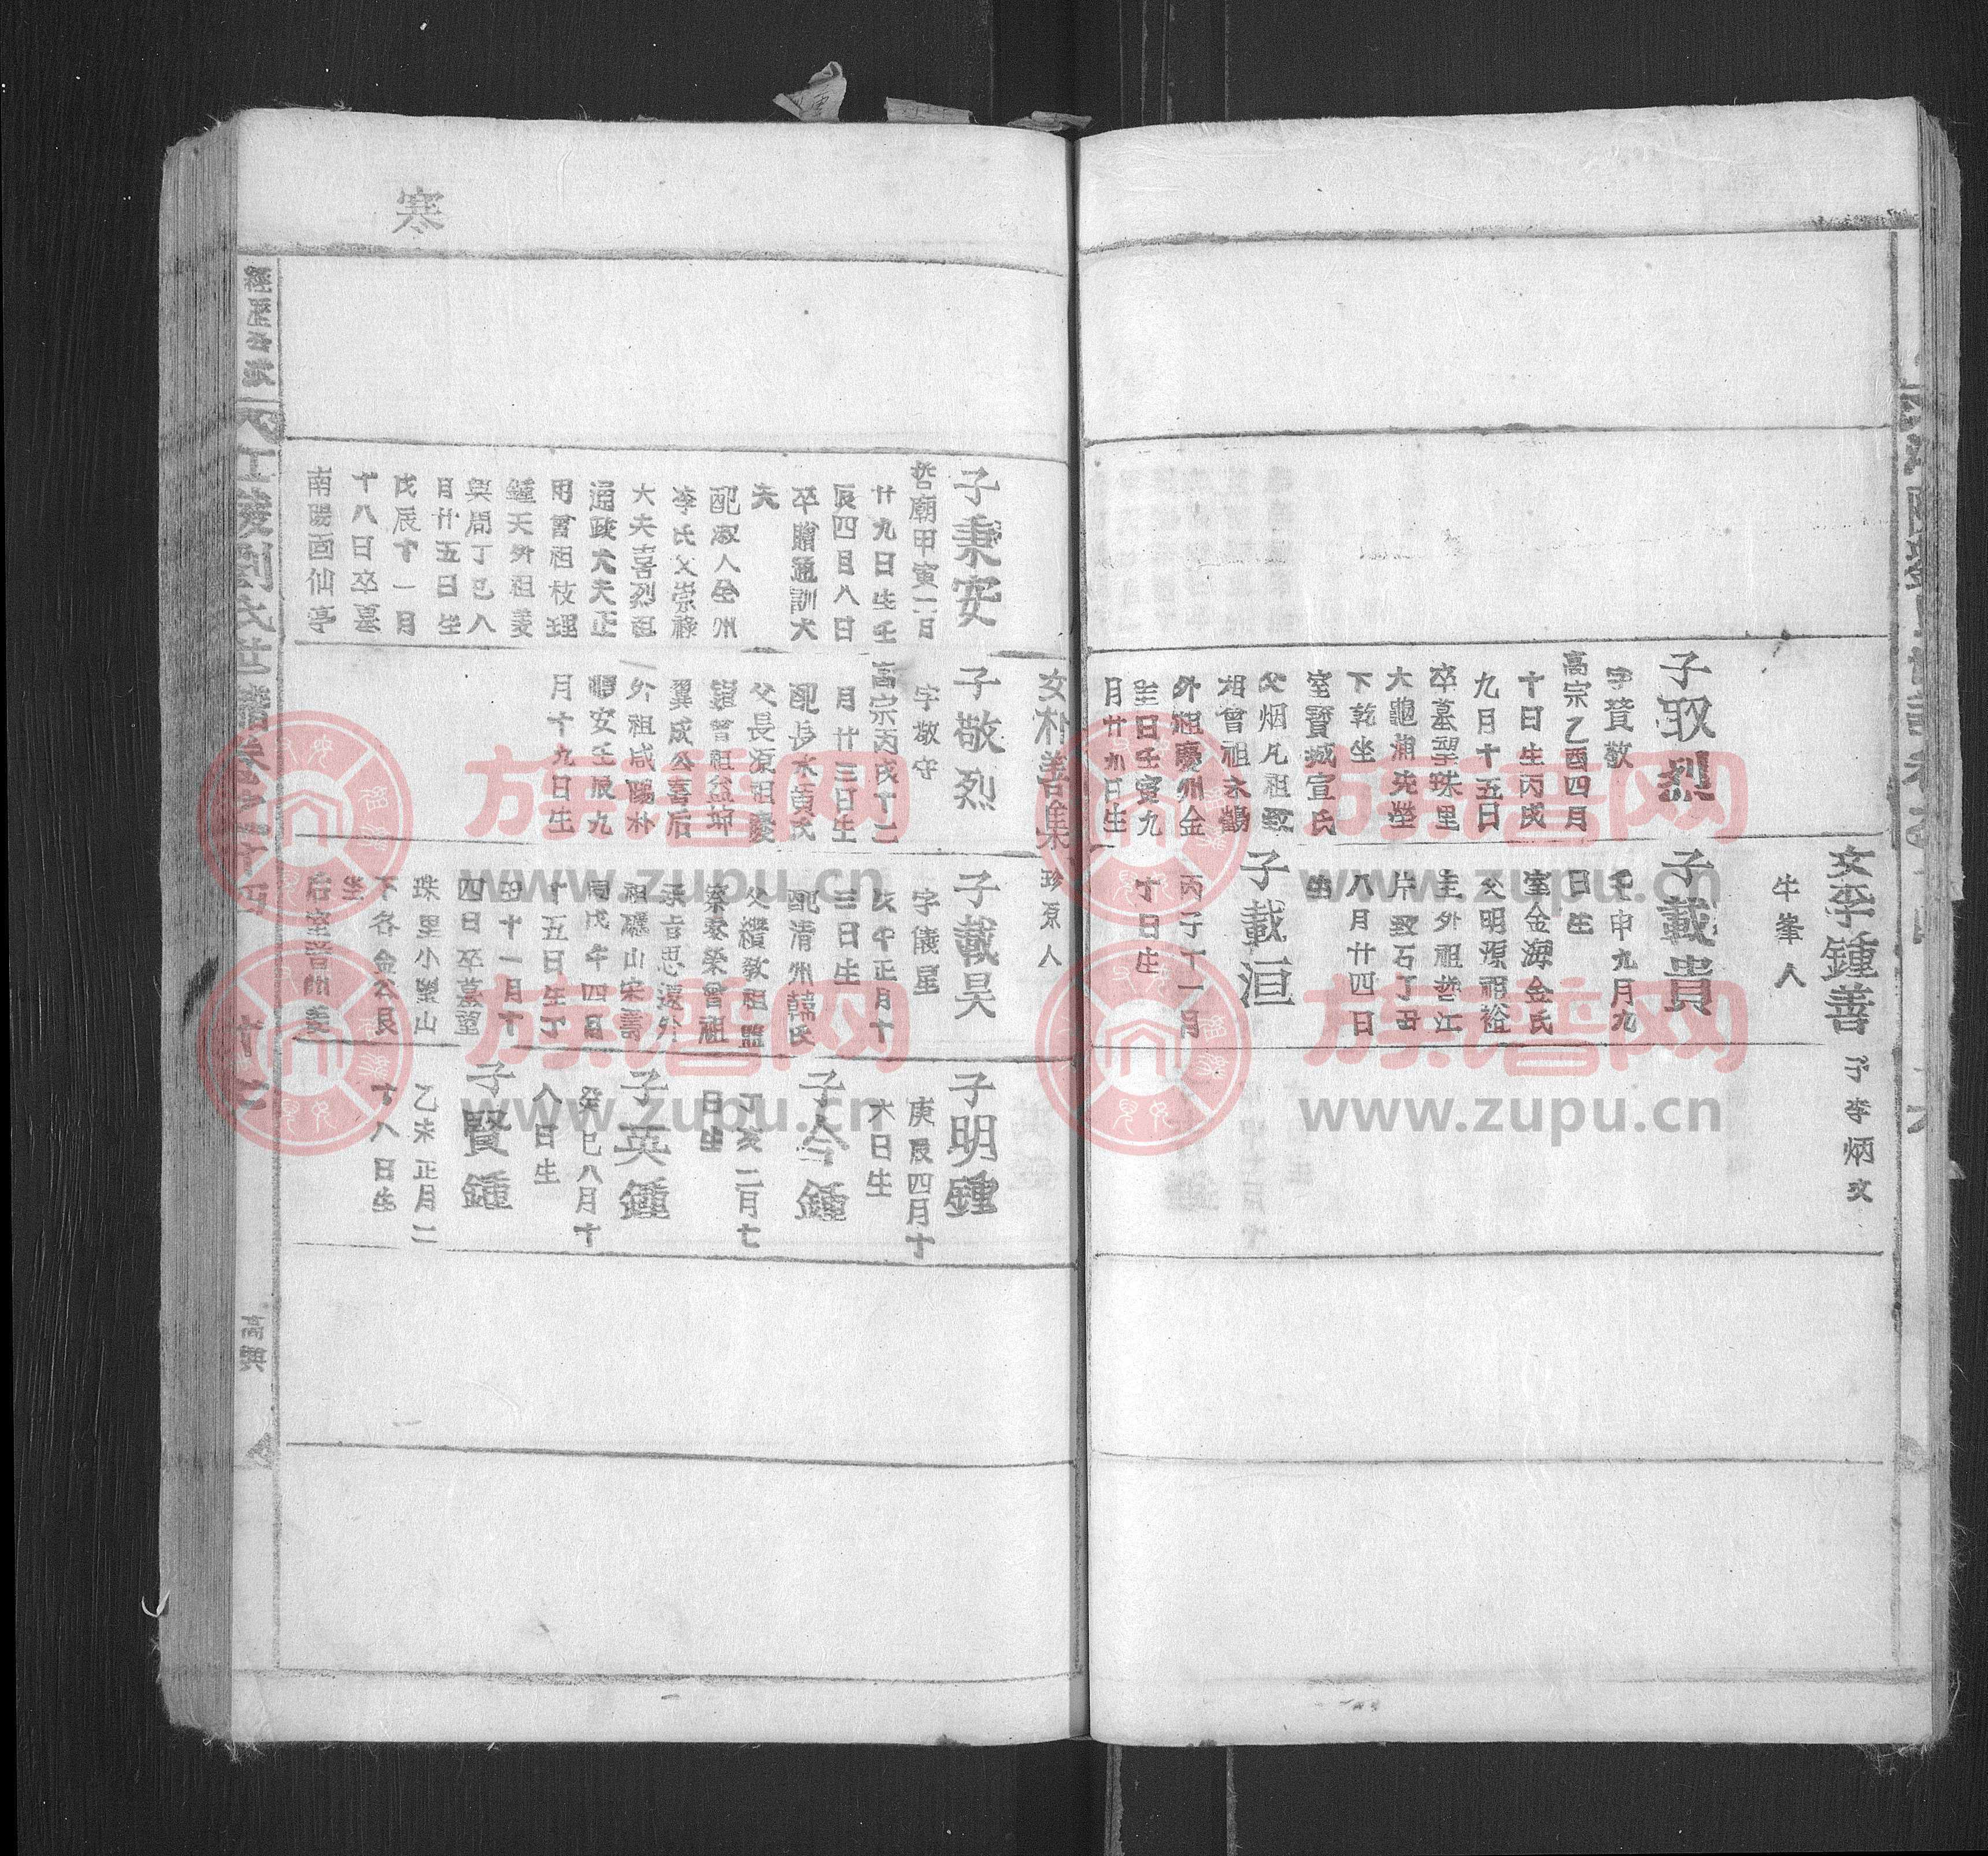 子取烈
字賛敬
高宗乙酉四月
十日生丙戌
九月十五日
卒墓望珠里
大龜浦先塋
下乾坐
室寶城宣氏
父烟凡祖致
相曾祖永鶴
外祖慶州金
生日壬寅九
月廿九日生
女李鍾善
牛峯人
子載貴
壬申九月九
日生
室金海金氏
父明源祖裕
片致石丁丑
八月廿四日
生
子載洹
丙子十一月
丁日生
子李炳文
寒
子秉安
哲廟甲寅二月
廿九日生壬
辰四月八日
卒贈通訓大
夫
配淑人全州
李氏父崇祿
大夫喜烈祖
通政大夫正
用曾祖枝理
鍾天外祖姜
與周丁巳八
月廿五日生
戊辰十一月
十八日卒墓
南陽面仙亭
女朴善集
珍原人
子敬烈
字敬守
高宗丙戌十二
月廿三日生
配長水黃氏
父長源祖慶
鎰曾祖益坤
翼成公喜后
外祖咸陽朴
順安壬辰九
月十九日生
子載昊
字儀星
三日生
配清州韓氏
父纘敎祖監
察泰榮曾祖
祖礪山宋壽
同戊午四月
十五日生丁
丑十一月十
四日卒墓望
珠里小聖山
下各金公艮
坐
后室晋州姜
子明鍾
庚辰四月十
六日生
子今鍾
丁亥二月七
日生
子英鍾
癸巳八月十
八日生
子賢鍾
乙未正月二
十八日生
經歷公派
江陵劉氏世譜卷之四十四
高興
族谱网
www.zupu.cn
族谱网
www.zupu.cn
族谱网
www.zupu.cn
族谱网
www.zupu.cn